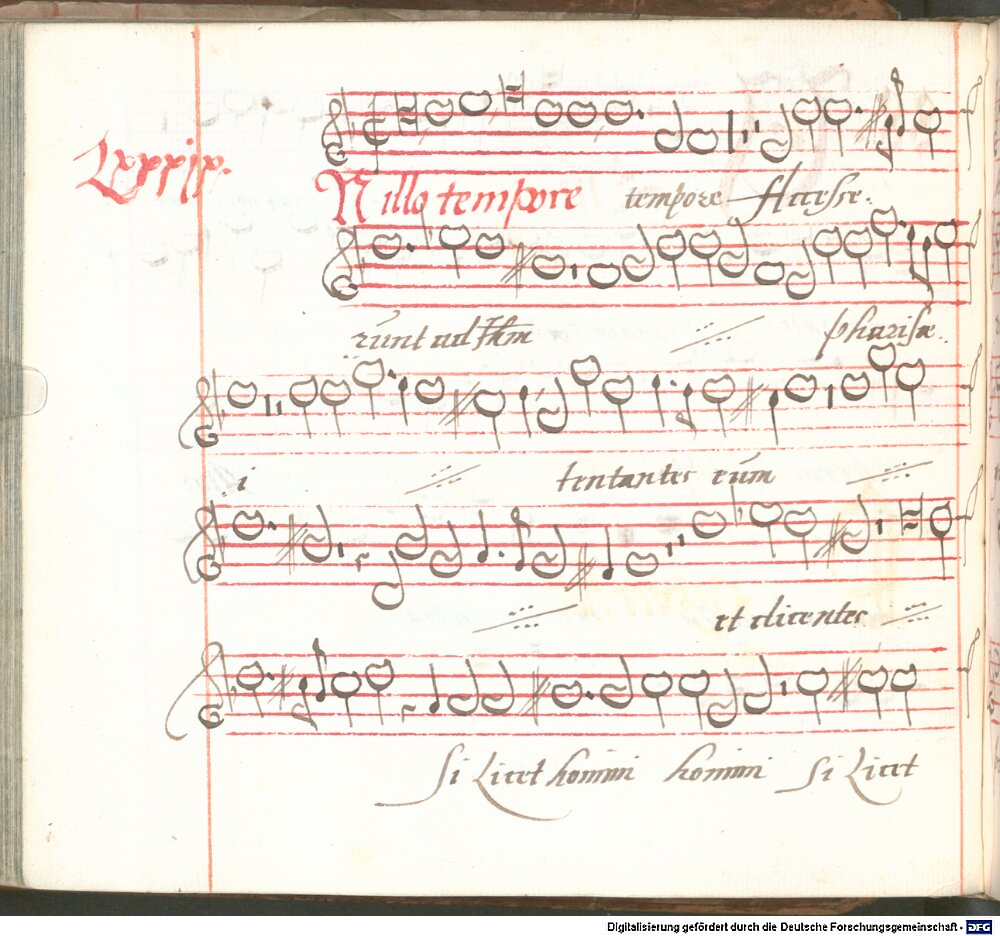 Lxxxix.
N illo tempore tempore Accesse
runt ad Jhm pharisæ
i tentantes eum
et dicentes
Si Licet homini homini Si Licet
Digitalisierung gefördert durch die Deutsche Forschungsgemeinschaft - DFG